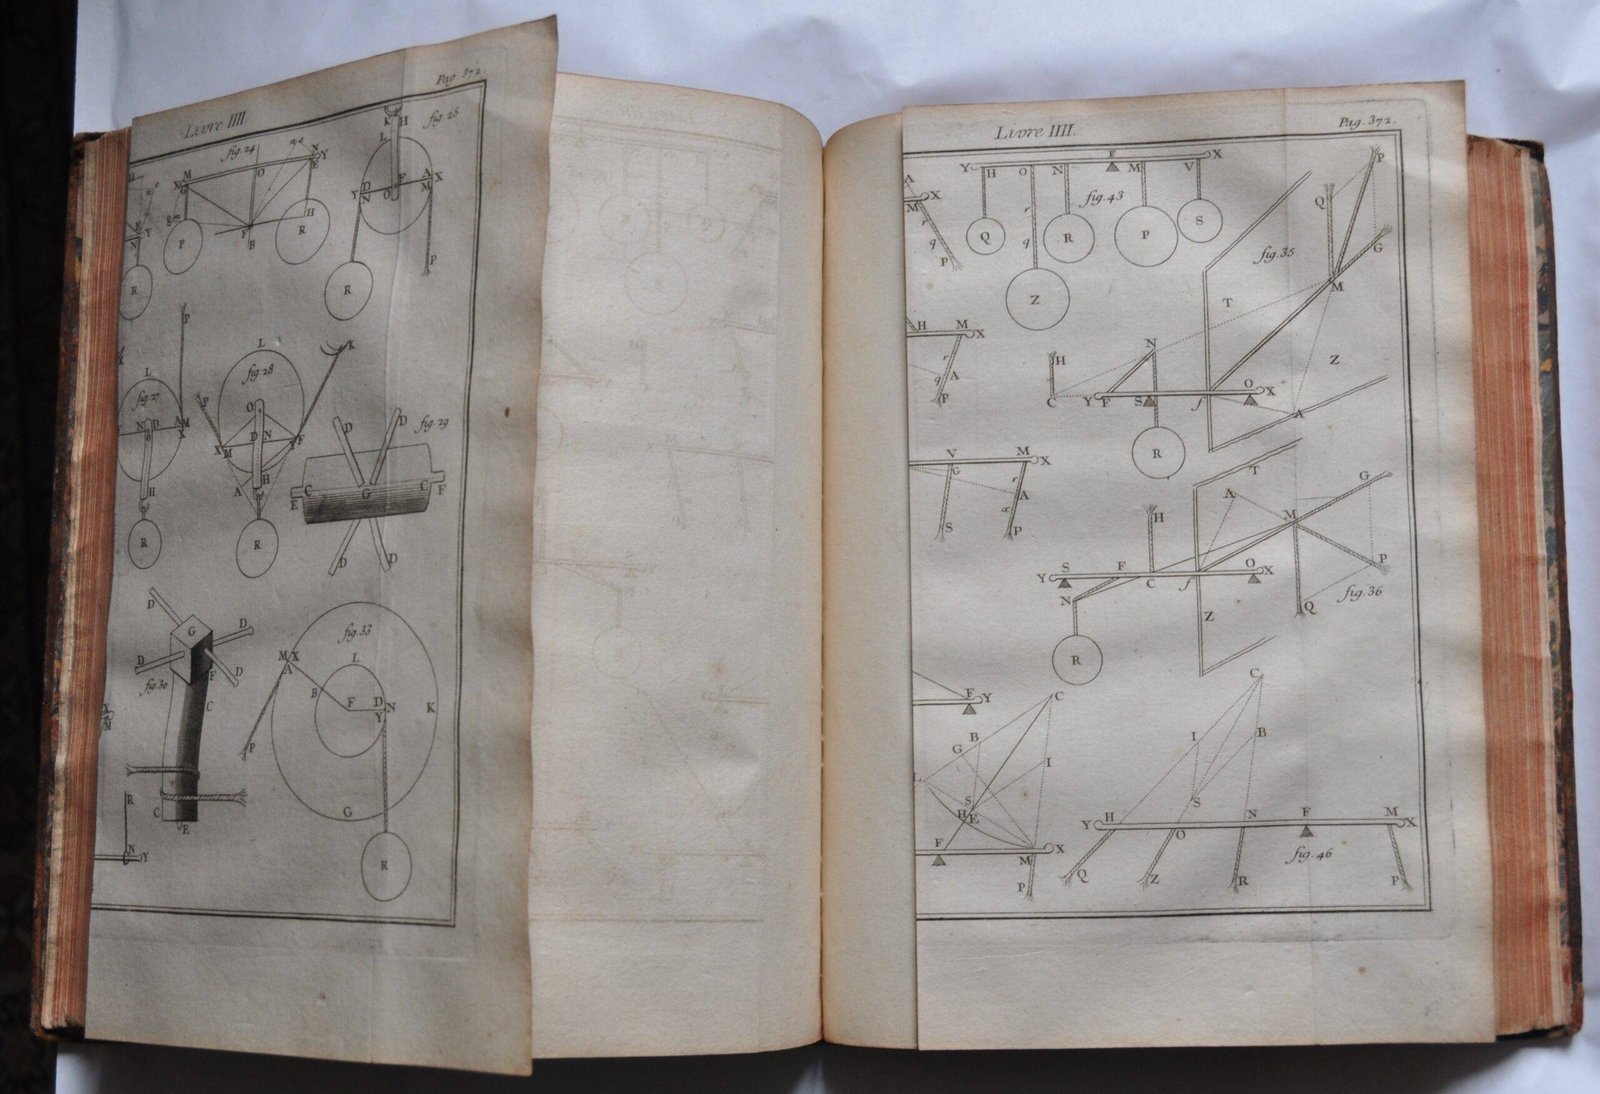 Livre IIII.
Pag. 372.
fig. 24
fig. 25
M
O
N
Y
E
X
G
P
F
B
H
R
N
Y
R
K
H
L
D
F
A
X
Y
N
O
M
R
P
P
L
fig. 27
N
D
A
M
X
H
R
L
fig. 28
K
P
O
D
N
X
M
Y
F
A
H
R
fig. 29
D
D
C
G
C
F
E
D
D
D
G
D
D
F
D
fig. 30
C
C
E
fig. 33
M
X
A
L
B
F
D
N
Y
K
P
G
R
X
M
R
N
Y
Livre IIII.
Pag. 372.
A
X
M
r
q
P
Y
H
O
N
F
M
V
X
fig. 43
Q
r
q
R
P
S
Z
fig. 35
P
Q
G
M
T
Z
H
C
N
Y
F
S
f
O
X
A
R
H
M
X
r
q
A
P
V
M
X
G
r
A
S
P
T
A
G
M
H
P
S
F
O
X
Y
C
f
N
Q
fig. 36
Z
R
F
Y
C
B
G
I
L
S
H
E
F
X
M
P
C
I
B
S
Y
H
O
N
F
M
X
fig. 46
Q
Z
R
P